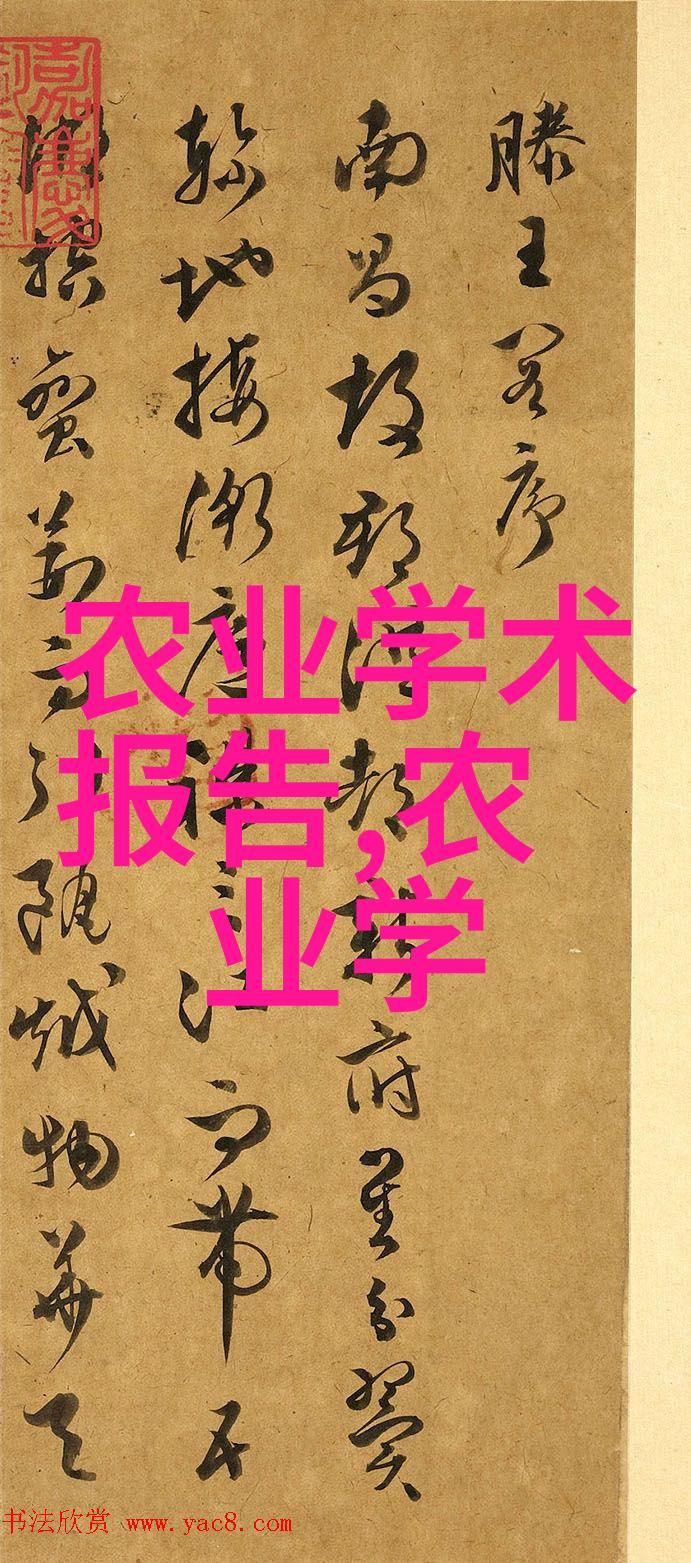 滕王閣序
南昌故郡洪都新府星分翼
軫地接衡廬襟三江而帶五
湖控蠻荊而引甌越物華天
农业学术
报告,农
业学
书法欣赏 www.yac8.com